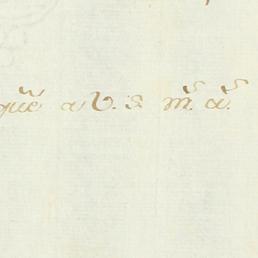 que a V. S. m.s a.s